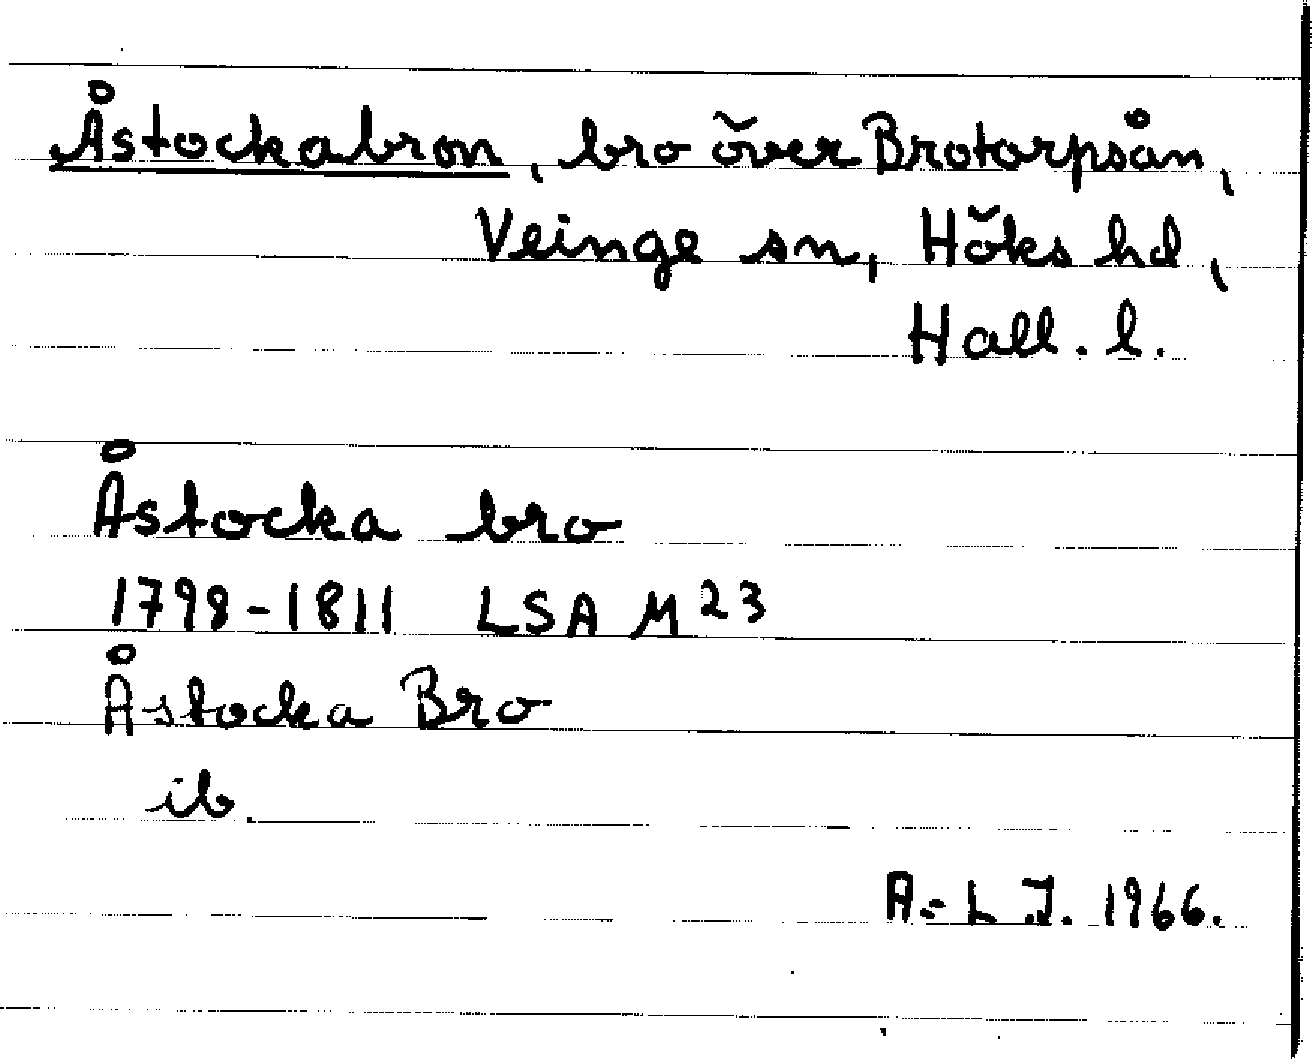 Åstockabron, bro över Brotorpsån,
Veinge sn, Höks hd,
Hall. l.
Åstocka bro
1798-1811 LSA M 23
Åstocka Bro
ib.
A-L J. 1966.